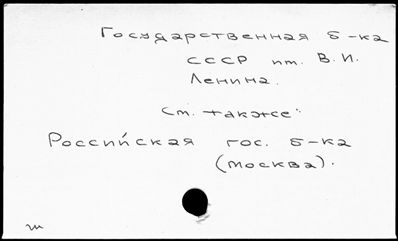 Государственная б-ка
СССР им. В.И.
Ленина.
См. также:
Российская гос. б-ка
(Москва).